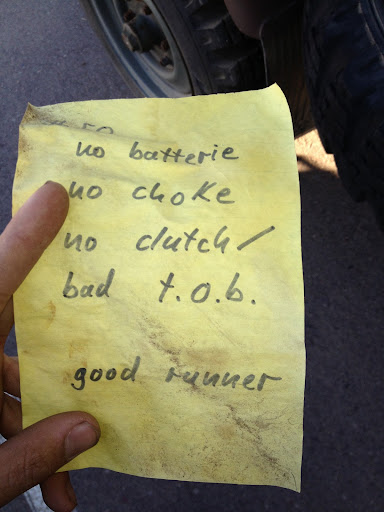 no batterie
no choke
no clutch/
bad t.o.b.
good runner